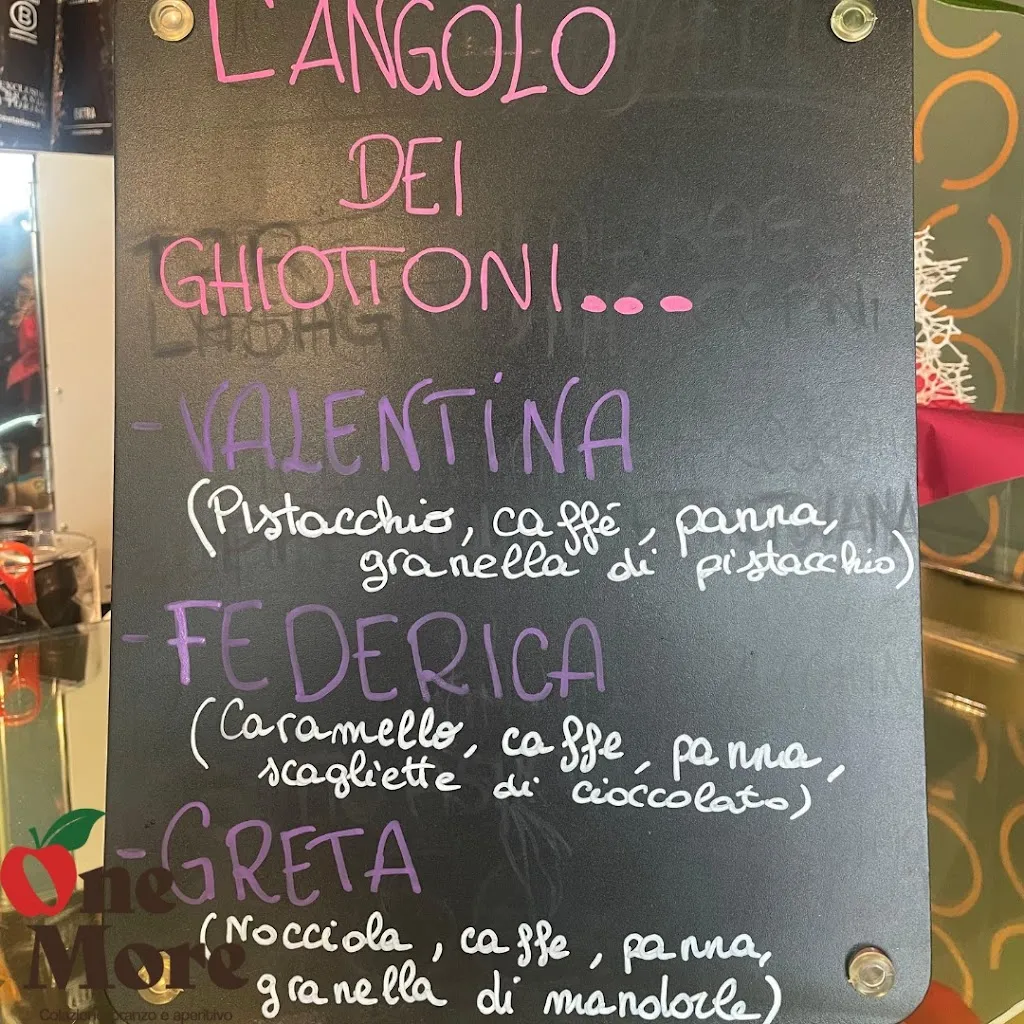 L'ANGOLO
DEI
GHIOTTONI...
-VALENTINA
(Pistacchio, caffé, panna,
granella di pistacchio)
-FEDERICA
(Caramello, caffe, panna,
scagliette di cioccolato)
-GRETA
(Nocciola, caffe, panna,
granella di mandorle)
One
More
Colazione pranzo e aperitivo
EXTRA